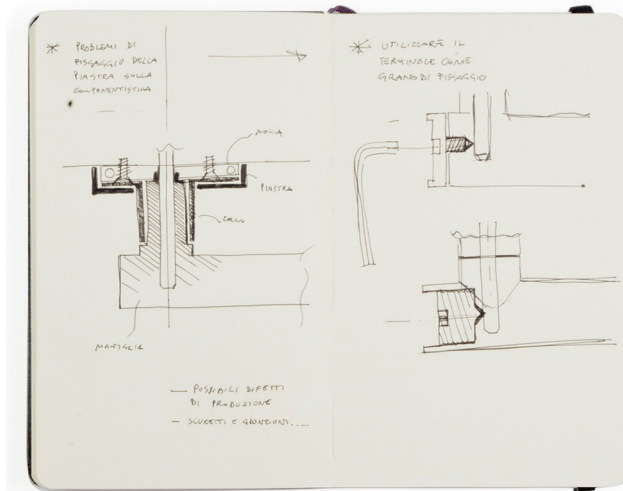 PROBLEMI DI
FISSAGGIO DELLA
PIASTRA SULLA
COMPONENTISTICA
MOLLA
PIASTRA
COLLO
MANIGLIA
— POSSIBILI DIFETTI
DI PRODUZIONE
— SCURETTI E GIUNZIONI....
UTILIZZARE IL
TERMINALE COME
GRANO DI FISSAGGIO